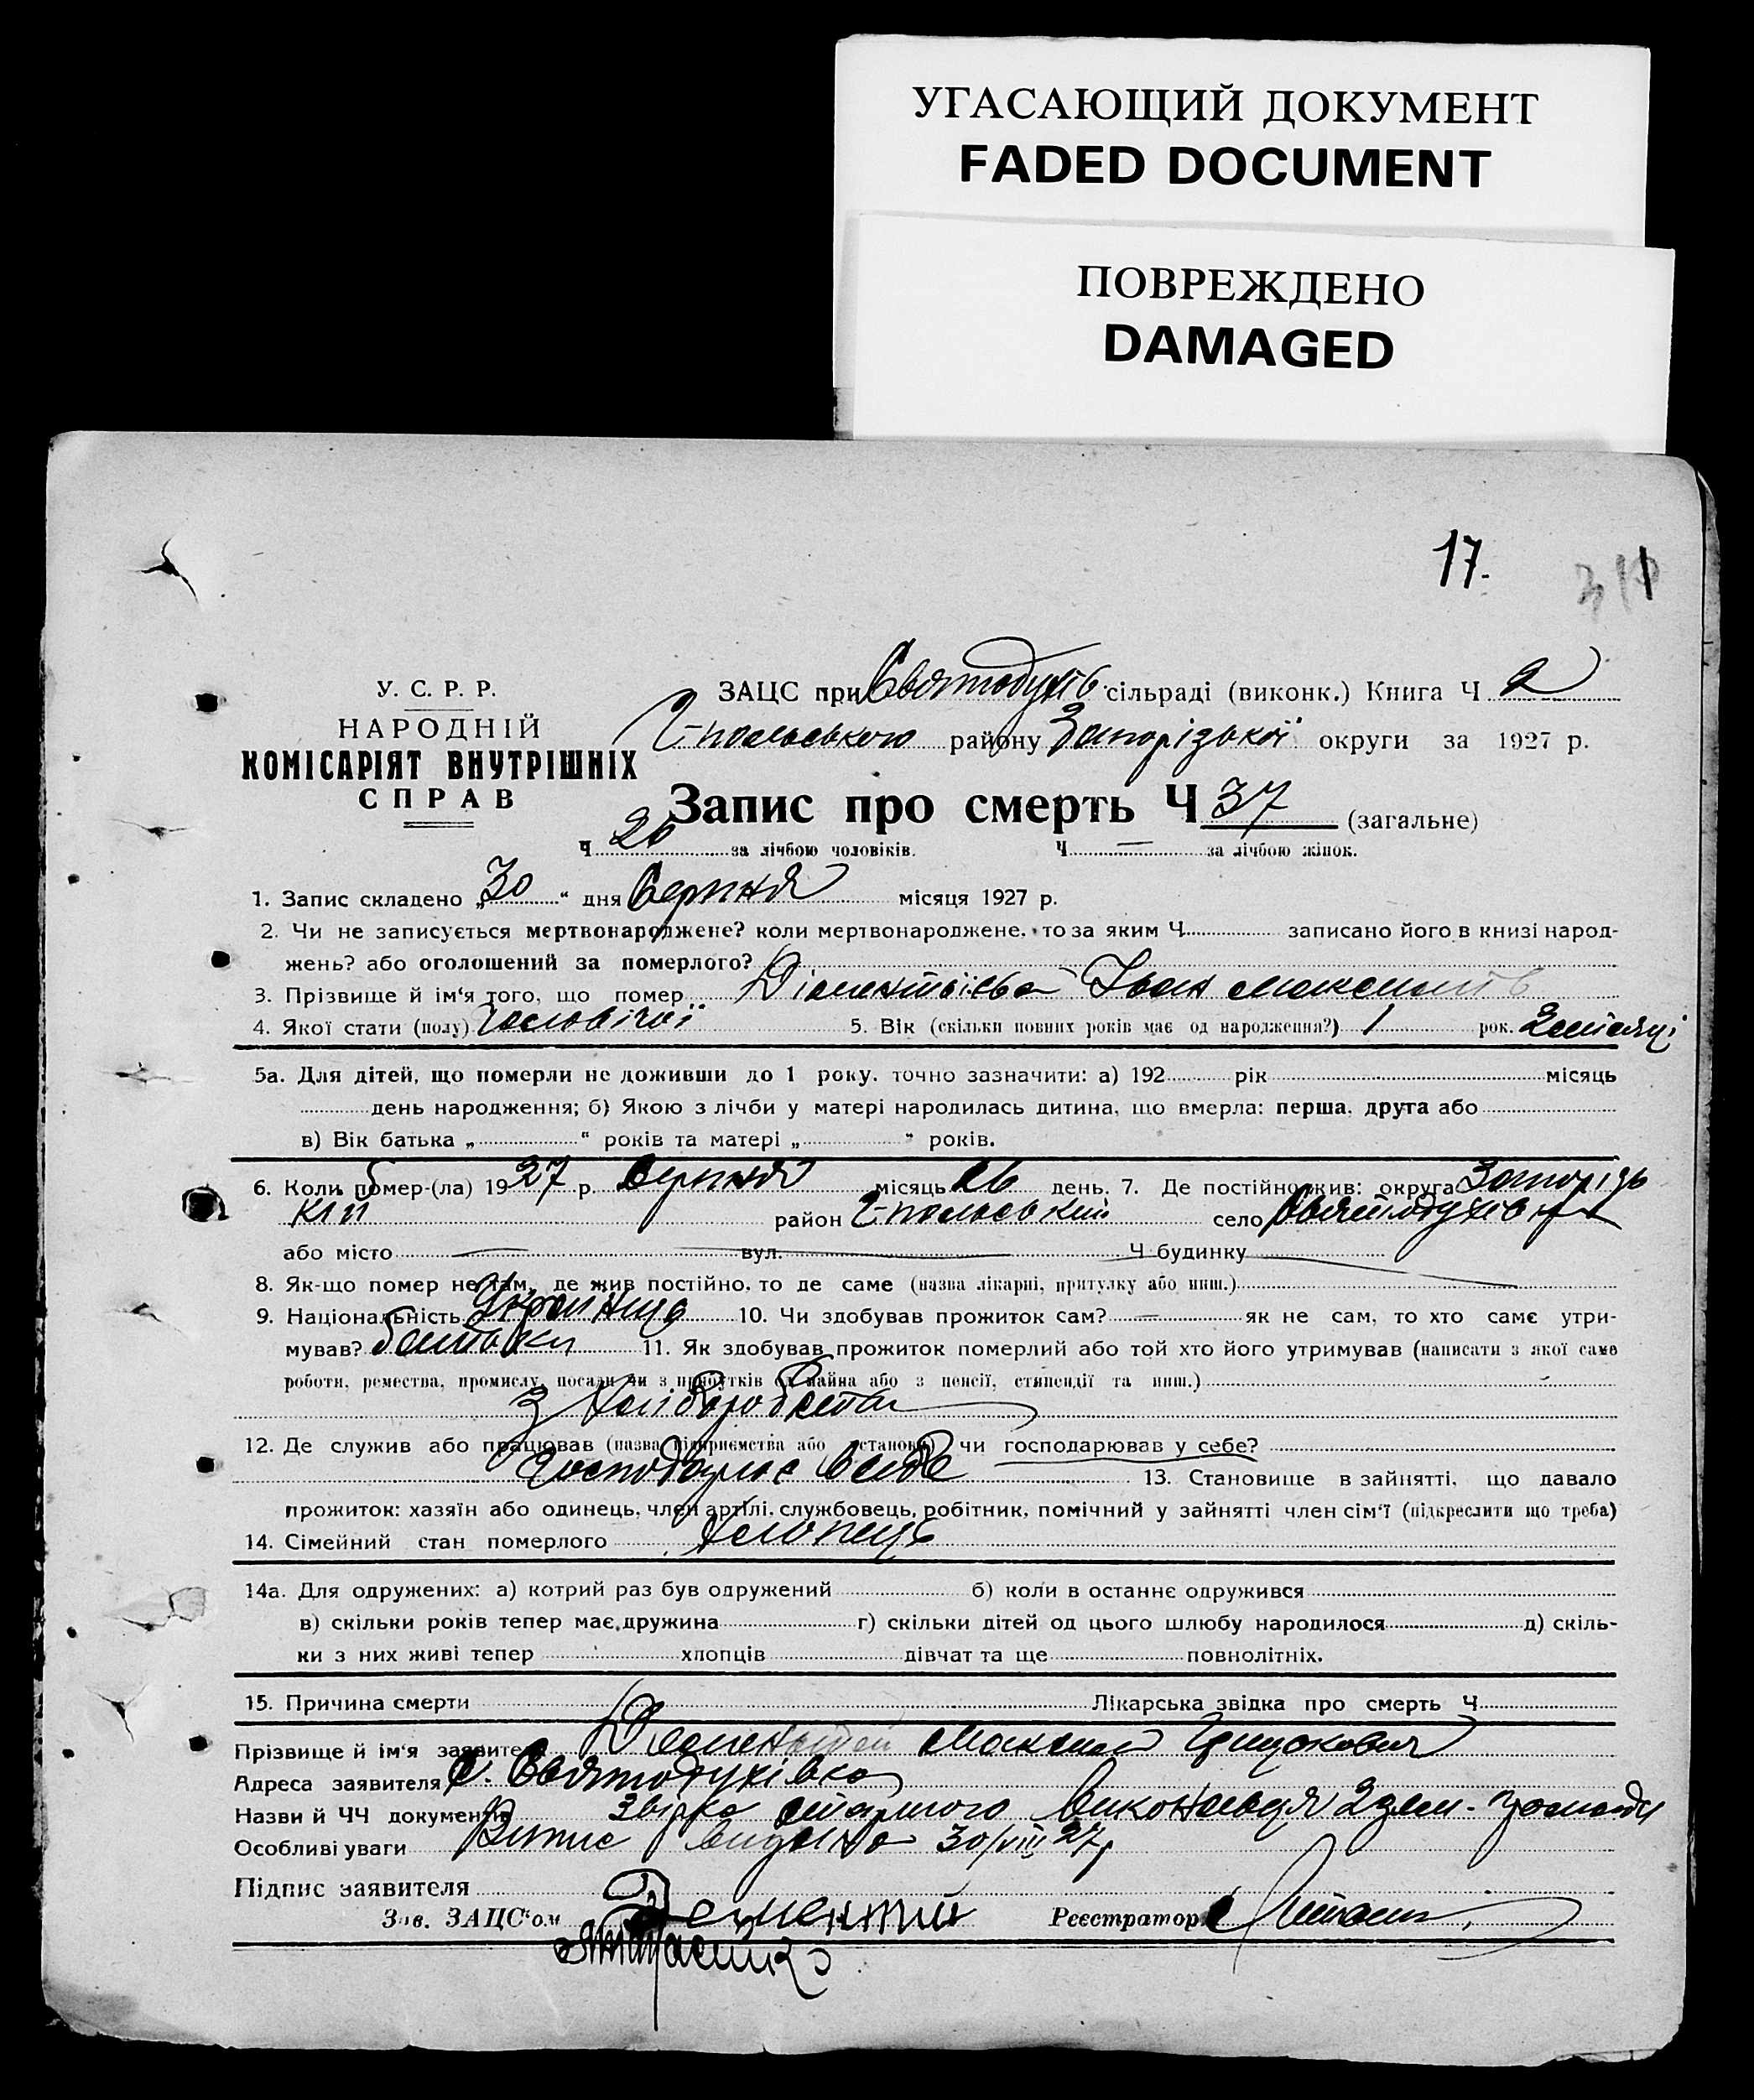 УГАСАЮЩИЙ ДОКУМЕНТ
FADED DOCUMENT
ПОВРЕЖДЕНО
DAMAGED
17.
У. С. Р. Р.
НАРОДНІЙ
КОМІСАРІЯТ ВНУТРІШНІХ
СПРАВ
ЗАЦС при Святодухів сільраді (виконк.) Книга Ч 2
району Запорізької округи за 1927 р.
Запис про смерть Ч 37 (загальне)
Ч 20 за лічбою чоловіків. Ч — за лічбою жінок.
1. Запис складено „30“ дня Серпня місяця 1927 р.
2. Чи не записується мертвонароджене? коли мертвонароджене, то за яким Ч записано його в книзі народ-
жень? або оголошений за померлого?
3. Прізвище й ім'я того, що помер Іван Максимів
4. Якої стати (полу) чоловічої 5. Вік (скільки повних років має од народження?) 1 рок. 2 місяці
5а. Для дітей, що померли не доживши до 1 року, точно зазначити: а) 192 рік місяць
день народження; б) Якою з лічби у матері народилась дитина, що вмерла: перша, друга або
в) Вік батька „ “ років та матері „ “ років.
6. Коли помер-(ла) 1927 р. Серпня місяць 26 день. 7. Де постійно жив: округа Запорізь
кій район село Святодухівка
або місто — вул. — Ч будинку —
8. Як-що помер не там, де жив постійно, то де саме (назва лікарні, притулку або инш.)
9. Національність Українець 10. Чи здобував прожиток сам? — як не сам, то хто саме утри-
мував? батьки 11. Як здобував прожиток померлий або той хто його утримував (написати з якої саме
роботи, ремества, промислу, посади чи з прибутків од майна або з пенсії, стипендії та инш.)
з хліборобства
12. Де служив або працював (назва підприємства або установи) чи господарював у себе?
Господарює в себе 13. Становище в зайнятті, що давало
прожиток: хазяїн або одинець, член артілі, службовець, робітник, помічний у зайнятті член сім'ї (підкреслити що треба)
14. Сімейний стан померлого хлопець
14а. Для одружених: а) котрий раз був одружений б) коли в останнє одружився
в) скільки років тепер має дружина г) скільки дітей од цього шлюбу народилося д) скіль-
ки з них живі тепер хлопців дівчат та ще повнолітніх.
15. Причина смерти Лікарська звідка про смерть Ч
Прізвище й ім'я заявителя Максим
Адреса заявителя с. Святодухівка
Назви й ЧЧ документів Звідка виконавця 2 зем. громади
Особливі уваги Випис видано 30/VIII 27 р
Підпис заявителя
Зав. ЗАЦС'ом Дементій Реєстратор